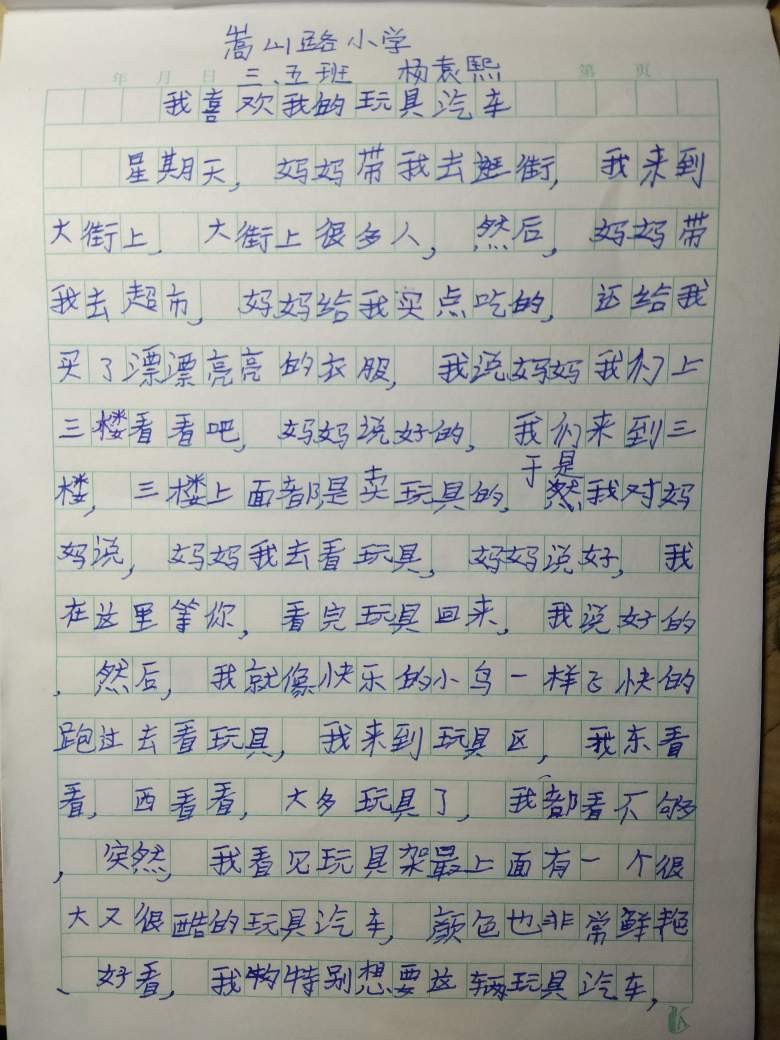 嵩山路小学
年 月 日 三.五班 杨袁熙 第 页
我喜欢我的玩具汽车
星期天，妈妈带我去逛街，我来到
大街上，大街上很多人，然后，妈妈带
我去超市，妈妈给我买点吃的，还给我
买了漂漂亮亮的衣服，我说妈妈我们上
三楼看看吧，妈妈说好的，我们来到三
楼，三楼上面都是卖玩具的，于是我对妈
妈说，妈妈我去看玩具，妈妈说好，我
在这里等你，看完玩具回来，我说好的
，然后，我就像快乐的小鸟一样飞快的
跑过去看玩具，我来到玩具区，我东看
看，西看看，大多玩具了，我都看不够
，突然，我看见玩具架最上面有一个很
大又很酷的玩具汽车，颜色也非常鲜艳
、好看，我特别想要这辆玩具汽车，